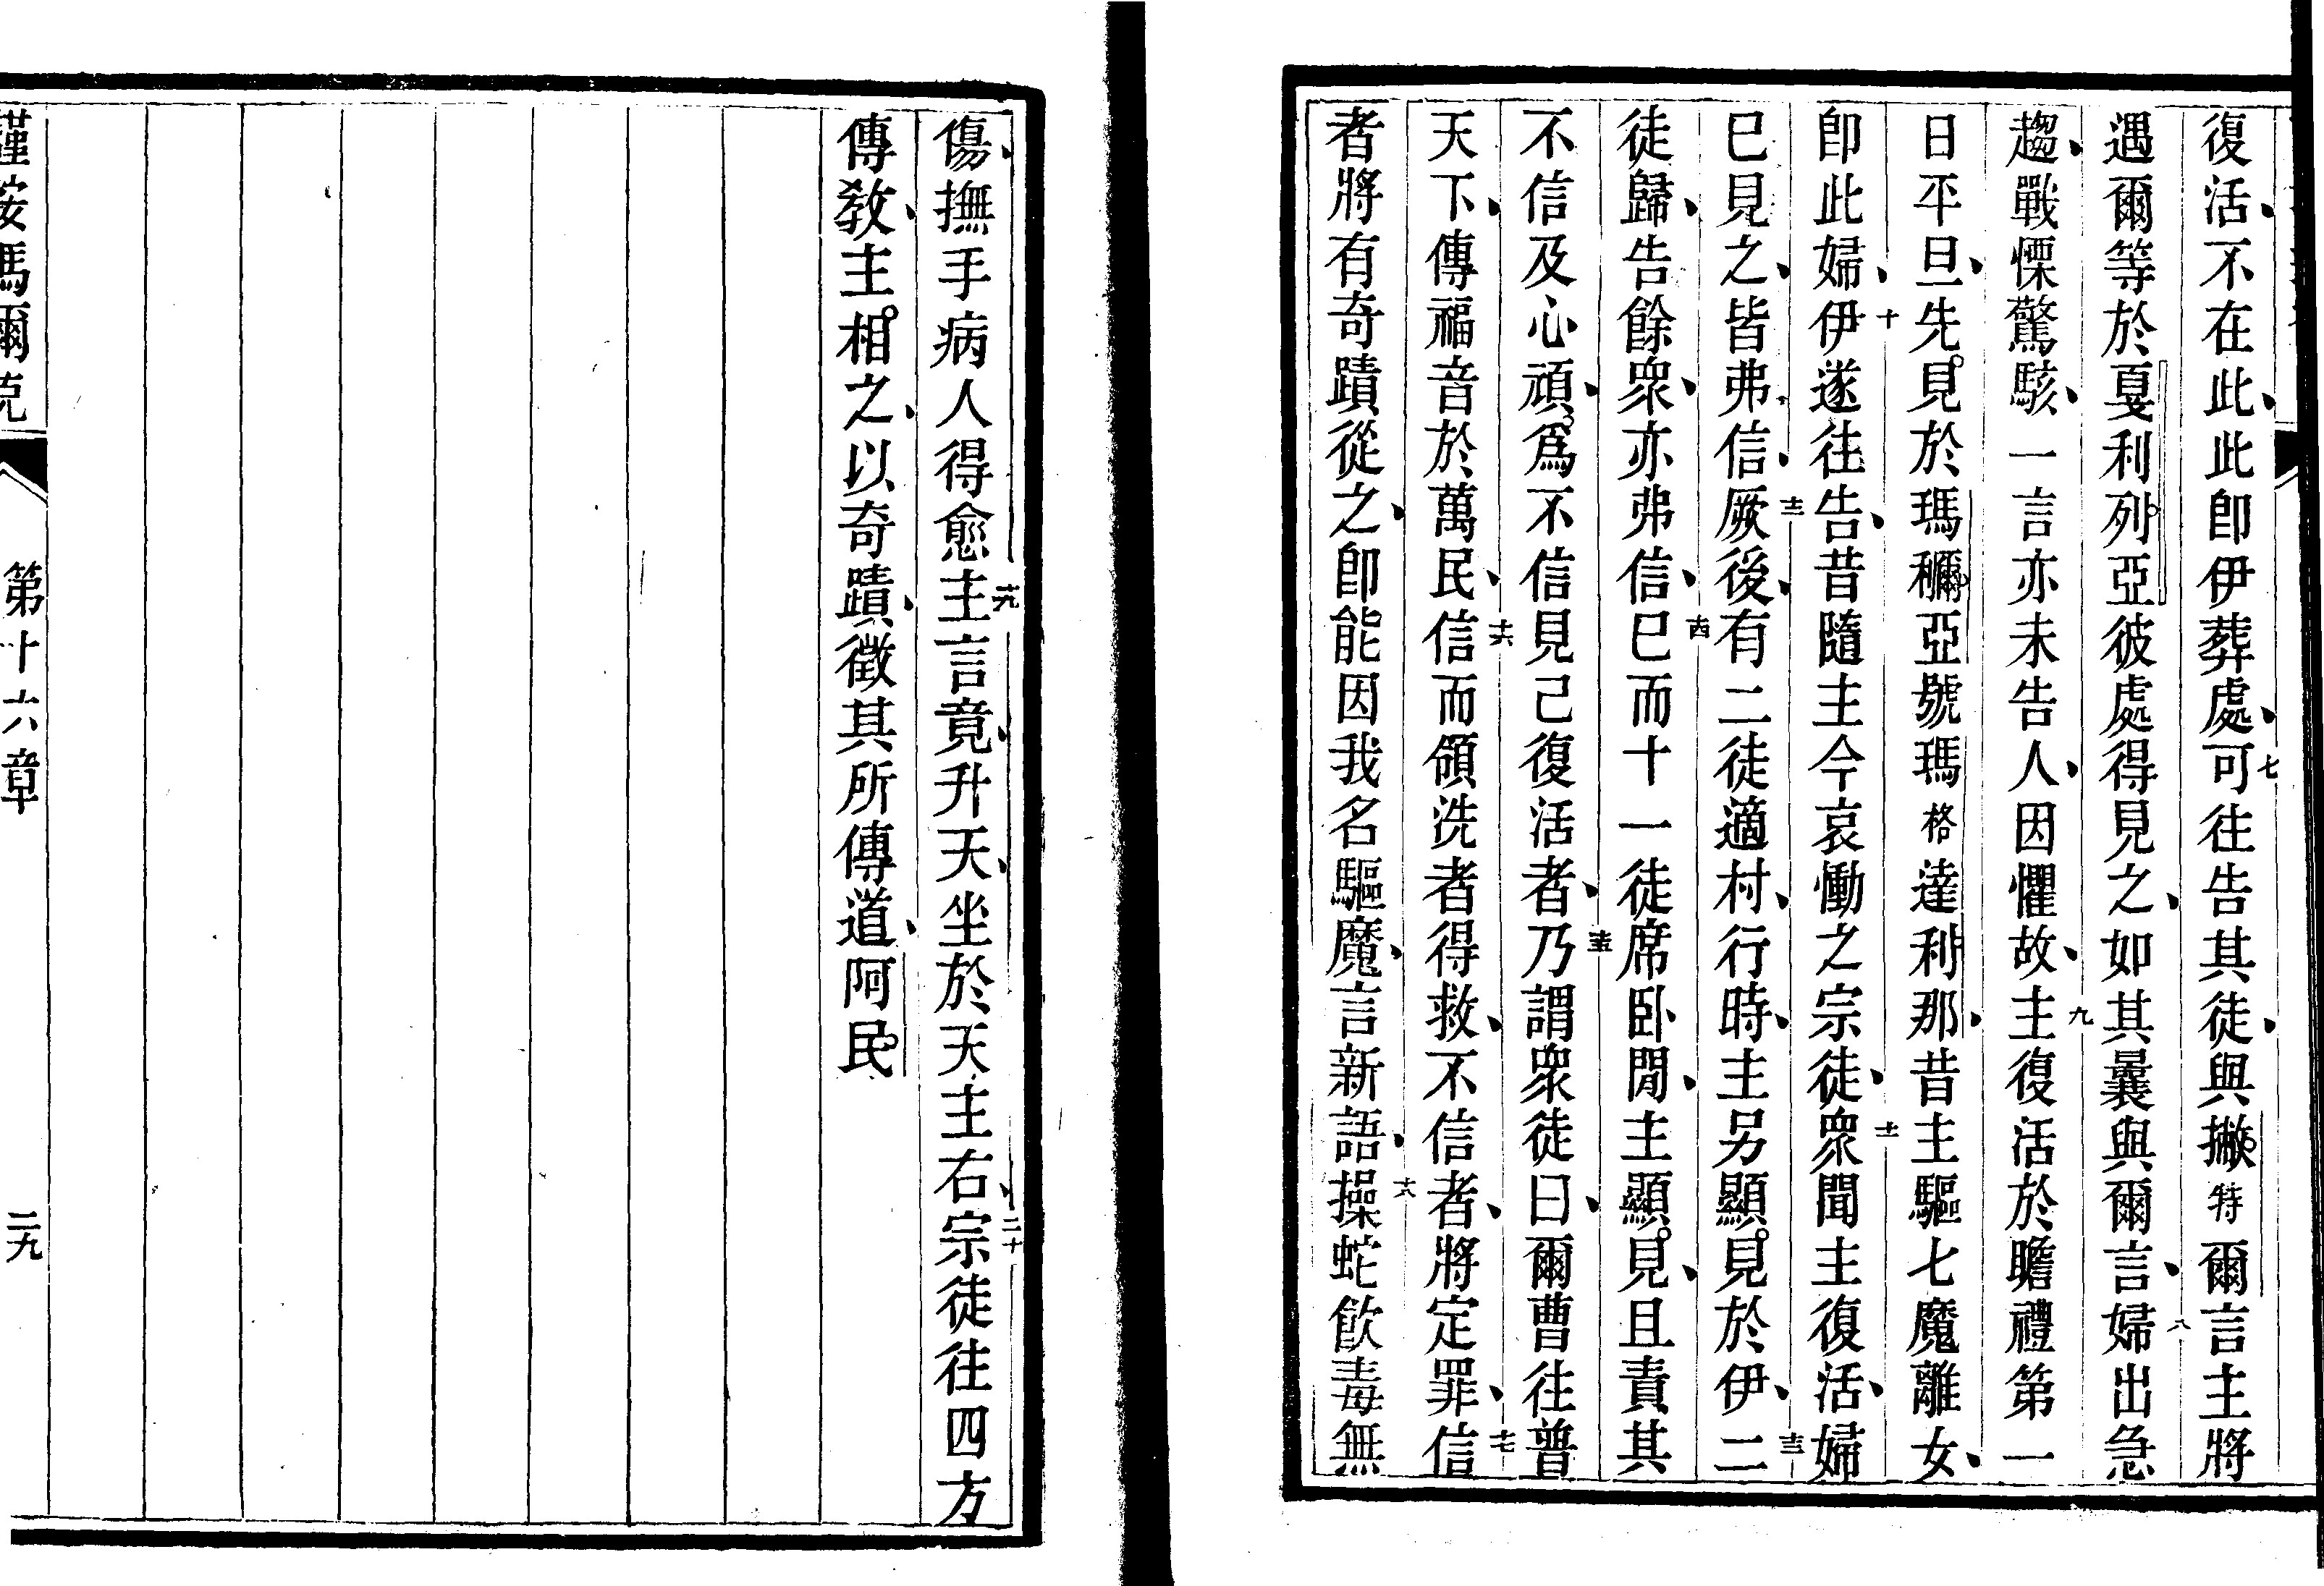 復活、不在此、此卽伊葬處、七可往告其徒、與撇特爾言主將
遇爾等於戛利列亞彼處得見之、如其曩與爾言、八婦出急
趨、戰慄驚駭、一言亦未告人、因懼故、九主復活於瞻禮第一
日平旦、先見於瑪穪亞號瑪格達利那、昔主驅七魔離女、
卽此婦、十伊遂往告、昔隨主今哀慟之宗徒、十一衆聞主復活、婦
已見之、皆弗信、十二厥後、有二徒適村、行時、主另顯見於伊、十三二
徒歸、告餘衆、亦弗信、十四已而十一徒席卧閒、主顯見、且責其
不信及心頑、爲不信見己復活者、十五乃謂衆徒曰、爾曹往普
天下、傳福音於萬民、十六信而領洗者得救、不信者、將定罪、十七信
者將有奇蹟從之、卽能因我名驅魔、言新語、十八操蛇飮毒無
傷、撫手病人得愈十九主言竟、升天、坐於天主右、二十宗徒往四方
傳教、主相之、以奇蹟、徵其所傳道、阿民
瑪爾克
第十六章
二九